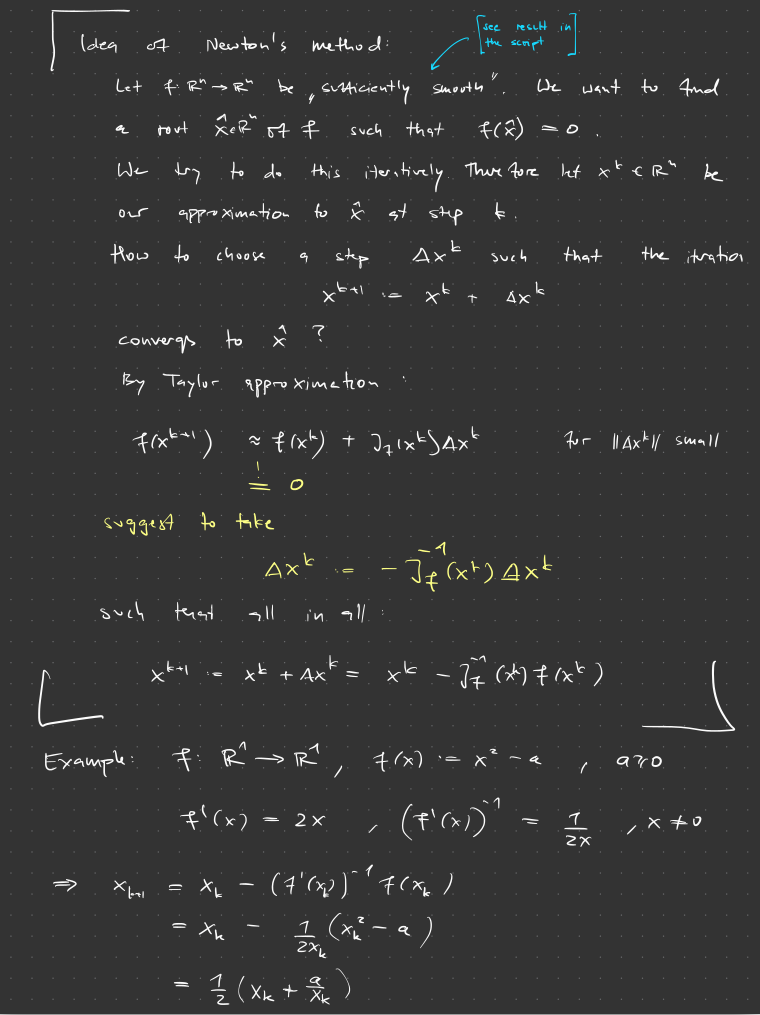 Idea of Newton's method:
[see result in
the script]
Let f: ℝⁿ → ℝⁿ be „sufficiently smooth“. We want to find
a root x̂ ∈ ℝⁿ of f such that f(x̂) = 0.
We try to do this iteratively. Therefore let xᵏ ∈ ℝⁿ be
our approximation to x̂ at step k.
How to choose a step Δxᵏ such that the itration
xᵏ⁺¹ := xᵏ + Δxᵏ
convergs to x̂ ?
By Taylor approximation:
f(xᵏ⁺¹) ≈ f(xᵏ) + J_f(xᵏ)Δxᵏ for ||Δxᵏ|| small
!
= 0
suggest to take
Δxᵏ := - J_f⁻¹(xᵏ) Δxᵏ
such that all in all:
xᵏ⁺¹ := xᵏ + Δxᵏ = xᵏ - J_f⁻¹(xᵏ) f(xᵏ)
Example: f: ℝ¹ → ℝ¹, f(x) := x² - a, a≥0
f'(x) = 2x, (f'(x))⁻¹ = 1/(2x), x ≠ 0
⇒ x_{k+1} = x_k - (f'(x_k))⁻¹ f(x_k)
= x_k - 1/(2x_k) (x_k² - a)
= 1/2 (x_k + a/x_k)